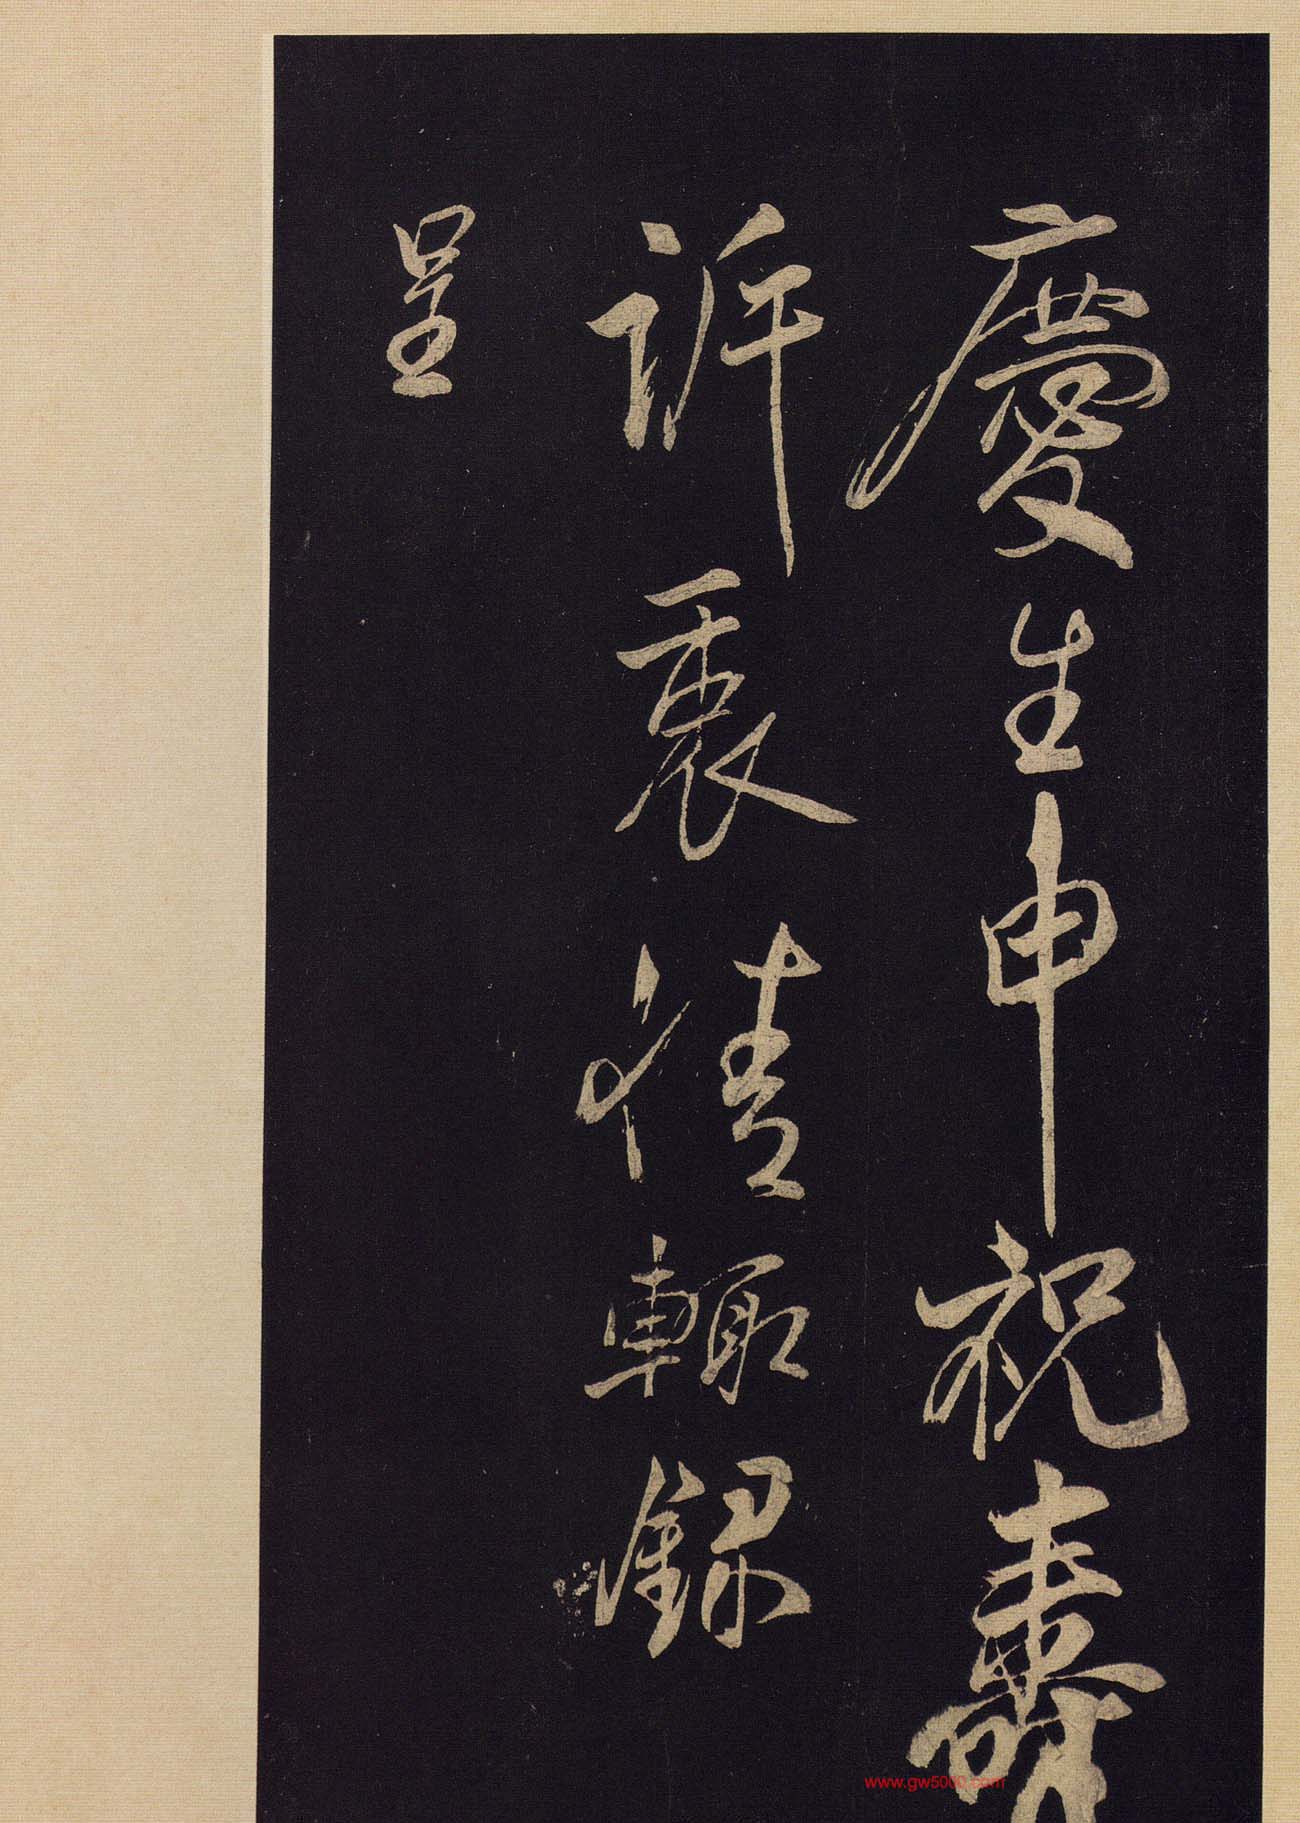 慶生申祝壽
訴衷情輒錄
呈
www.gw5000.com